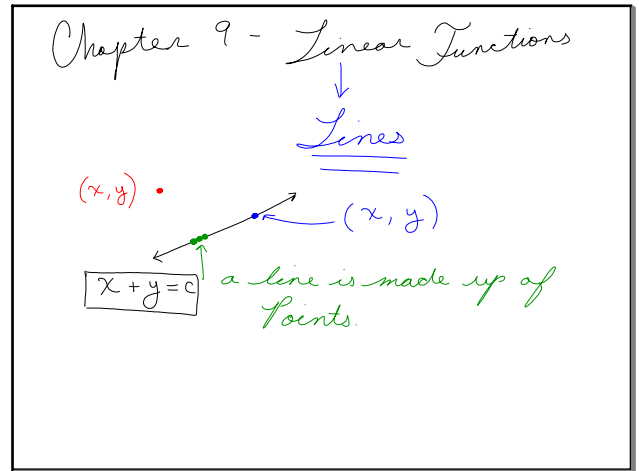 Chapter 9 - Linear Functions
Lines
(x, y)
(x, y)
x + y = c
a line is made up of
Points.